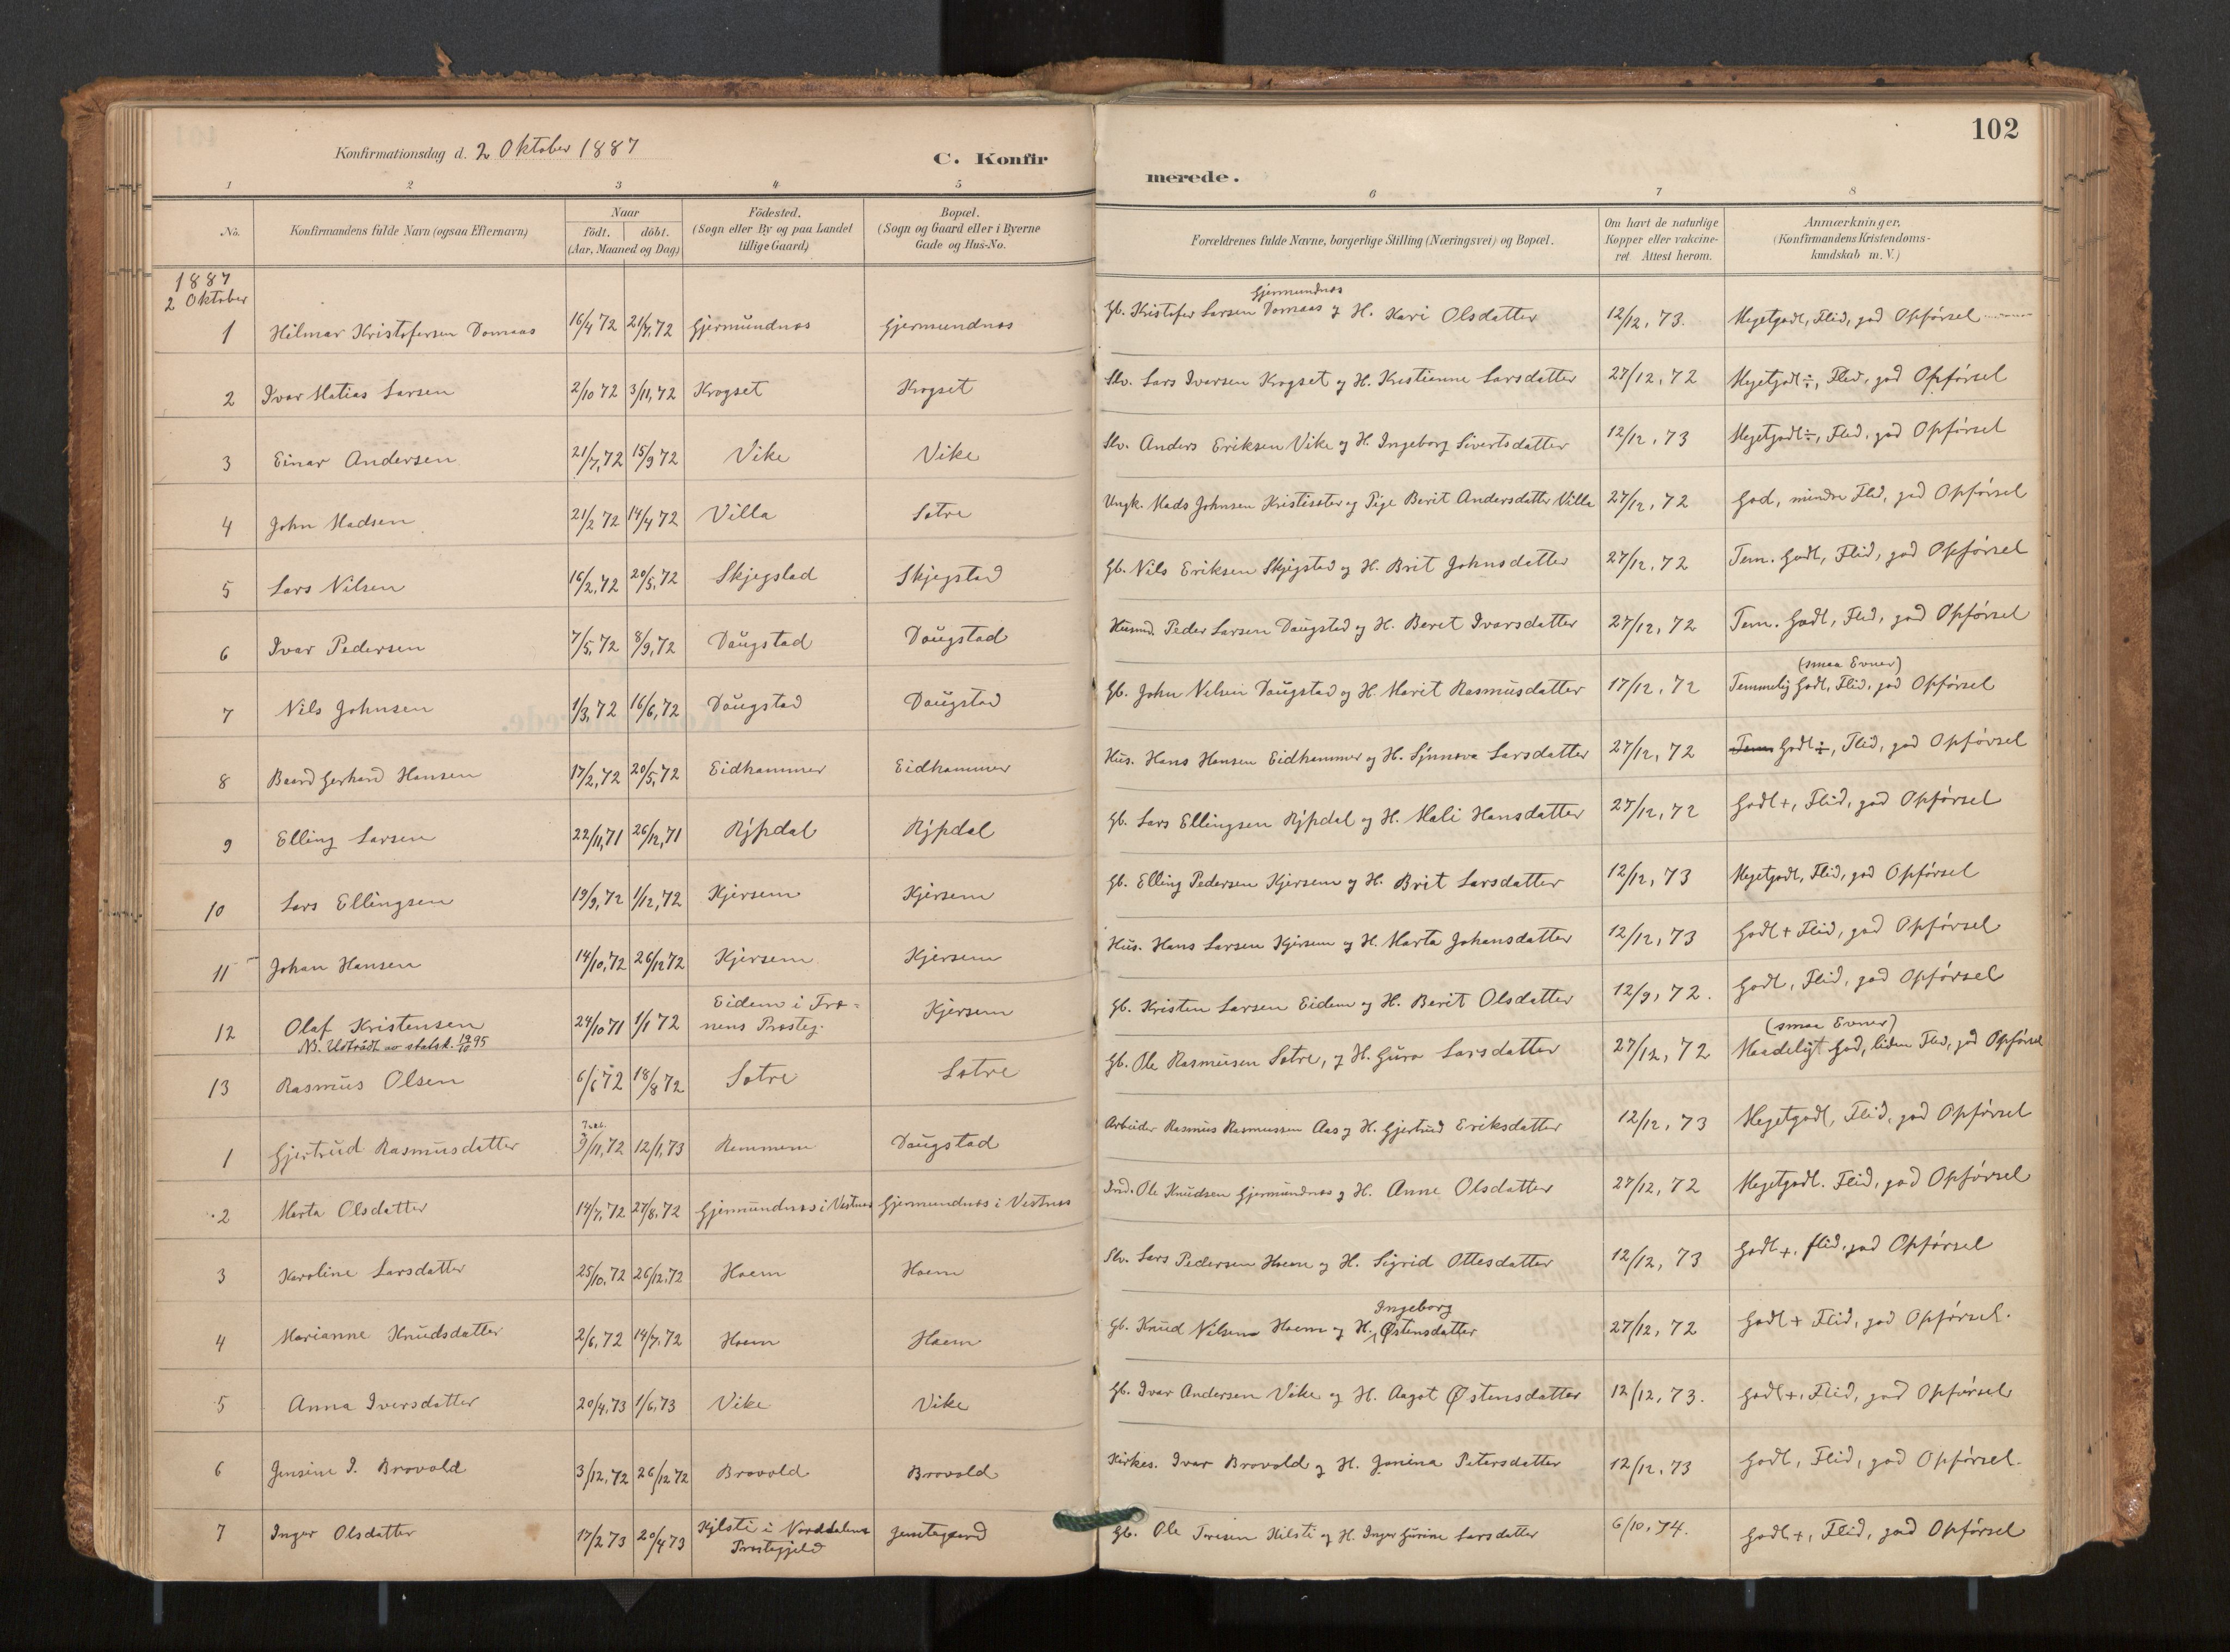 102
Konfirmationsdag d. 2 Oktober 1887
C. Konfirmerede.
1 2 3 4 5 6 7 8
No. Konfirmandens fulde Navn (ogsaa Efternavn) Naar födt. döbt. (Aar, Maaned og Dag) Födested. (Sogn eller By og paa Landet tillige Gaard) Bopæl. (Sogn og Gaard eller i Byerne Gade og Hus-No. Forældrenes fulde Navne, borgerlige Stilling (Næringsvei) og Bopæl. Om havt de naturlige Kopper eller vakcineret. Attest herom. Anmærkninger, (Konfirmandens Kristendomskundskab m. V.)
1887
2 Oktober
1 Hilmar Kristofersen Domaas 16/4 72 21/7, 72 Gjermundnæs Gjermundnæs Gb. Kristofer Larsen Domaas Gjermundnæs og H. Kari Olsdatter 12/12, 73. Megetgodt, Flid, god Opførsel
2 Ivar Matias Larsen 2/10 72 3/11, 72 Krogset Krogset Slv. Lars Ivarsen Krogset og H. Kristianne Larsdatter 27/12, 72 Megetgodt÷, Flid, god Opførsel
3 Einar Andersen 21/7, 72 15/9 72 Vike Vike Slv. Anders Eriksen Vike og H. Ingeborg Sivertsdatter 12/12, 73 Megetgodt÷, Flid, god Opførsel
4 John Madsen 21/2 72 14/4 72 Villa Sætre Ungk. Mads Johnsen Kristisæter og Pige Berit Andersdatter Villa 27/12, 72 God, mindre Flid, god Opførsel
5 Lars Nilsen 16/2, 72 20/5, 72 Skjegstad Skjegstad Gb. Nils Eriksen Skjegstad og H. Brit Johnsdatter 27/12, 72 Tem. Godt, Flid, god Opførsel
6 Ivar Pedersen 7/5, 72 8/9, 72 Daugstad Daugstad Husmd. Peder Larsen Daugstad og H. Beret Ivarsdatter 27/12, 72 Tem. Godt, Flid, god Opførsel
7 Nils Johnsen 1/3, 72 16/6, 72 Daugstad Daugstad Gb. John Nilsen Daugstad og H. Marit Rasmusdatter 17/12, 72 Temmelig Godt, (smaa Evner) Flid, god Opførsel
8 Baard Gerhard Hansen 17/2, 72 20/5, 72 Eidhammer Eidhammer Hus. Hans Hansen Eidhammer og H. Synnøva Larsdatter 27/12, 72 Tem Godt÷, Flid, god Opførsel
9 Elling Larsen 22/11, 71 26/12, 71 Rypdal Rypdal Gb. Lars Ellingsen Rypdal og H. Mali Hansdatter 27/12, 72 Godt+, Flid, god Opførsel
10 Lars Ellingsen 19/9, 72 1/12, 72 Kjersem Kjersem Gb. Elling Pedersen Kjersem og H. Brit Larsdatter 12/12, 73 Megetgodt, Flid, god Opførsel
11 Johan Hansen 14/10, 72 26/12 72 Kjersem Kjersem Hus. Hans Larsen Kjersem og H. Marta Johansdatter 12/12, 73 Godt+ Flid, god Opførsel
12 Olaf Kristensen 24/10 71 1/1 72 Eidem i Træ= Kjersem Gb. Kristen Larsen Eidem og H. Berit Olsdatter 12/9, 72. Godt, Flid, god Opførsel
nens Præsteg.
NB. Udtrådt av statsk. 19/10 95
13 Rasmus Olsen 6/6 72 18/8 72 Sætre Sætre Gb. Ole Rasmusen Sætre, og H. Guro Larsdatter 27/12, 72 (smaa Evner) Maadeligt God, liden Flid, god Opførsel
1 Gjertrud Rasmusdatter 9/11, 72 12/1, 73 Remmem Daugstad Arbeider Rasmus Rasmussen Aas og H. Gjertrud Eriksdatter 12/12, 73 Megetgodt, Flid, god Opførsel
2 Marta Olsdatter 14/7, 72 27/8, 72 Gjermundnæs i Vestnæs Gjermundnæs i Vestnæs Ind. Ole Knudsen Gjermundnæs og H. Anne Olsdatter 27/12, 72 Megetgodt. Flid, god Opførsel
3 Karoline Larsdatter 25/10, 72 26/12, 72 Hoem Hoem Slv. Lars Pedersen Hoem og H. Sigrid Ottesdatter 12/12, 73 Godt+, flid, god Opførsel
4 Marianne Knudsdatter 2/6, 72 14/7, 72 Hoem Hoem Gb. Knud Nilsen Hoem og H. Ingeborg Østensdatter 27/12, 72 Godt+ Flid, god Opførsel.
5 Anna Iversdatter 20/4, 73 1/6, 73 Vike Vike Gb. Ivar Andersen Vike og H. Aagot Østensdatter 12/12, 73. Godt+, Flid, god Opførsel
6 Jensine I. Brovold 3/12, 72 26/12 72 Brovold Brovold Kirkes. Ivar Brovold og H. Janina Petersdatter 12/12, 73 Godt, Flid, god Opførsel.
7 Inger Olsdatter 17/2 73 20/4 73 Kilsti i Norddalens Præstegjeld Gb. Ole Kilsti og H. Inger Gurine Larsdatter 6/10, 74. Godt+, Flid, god Opførsel